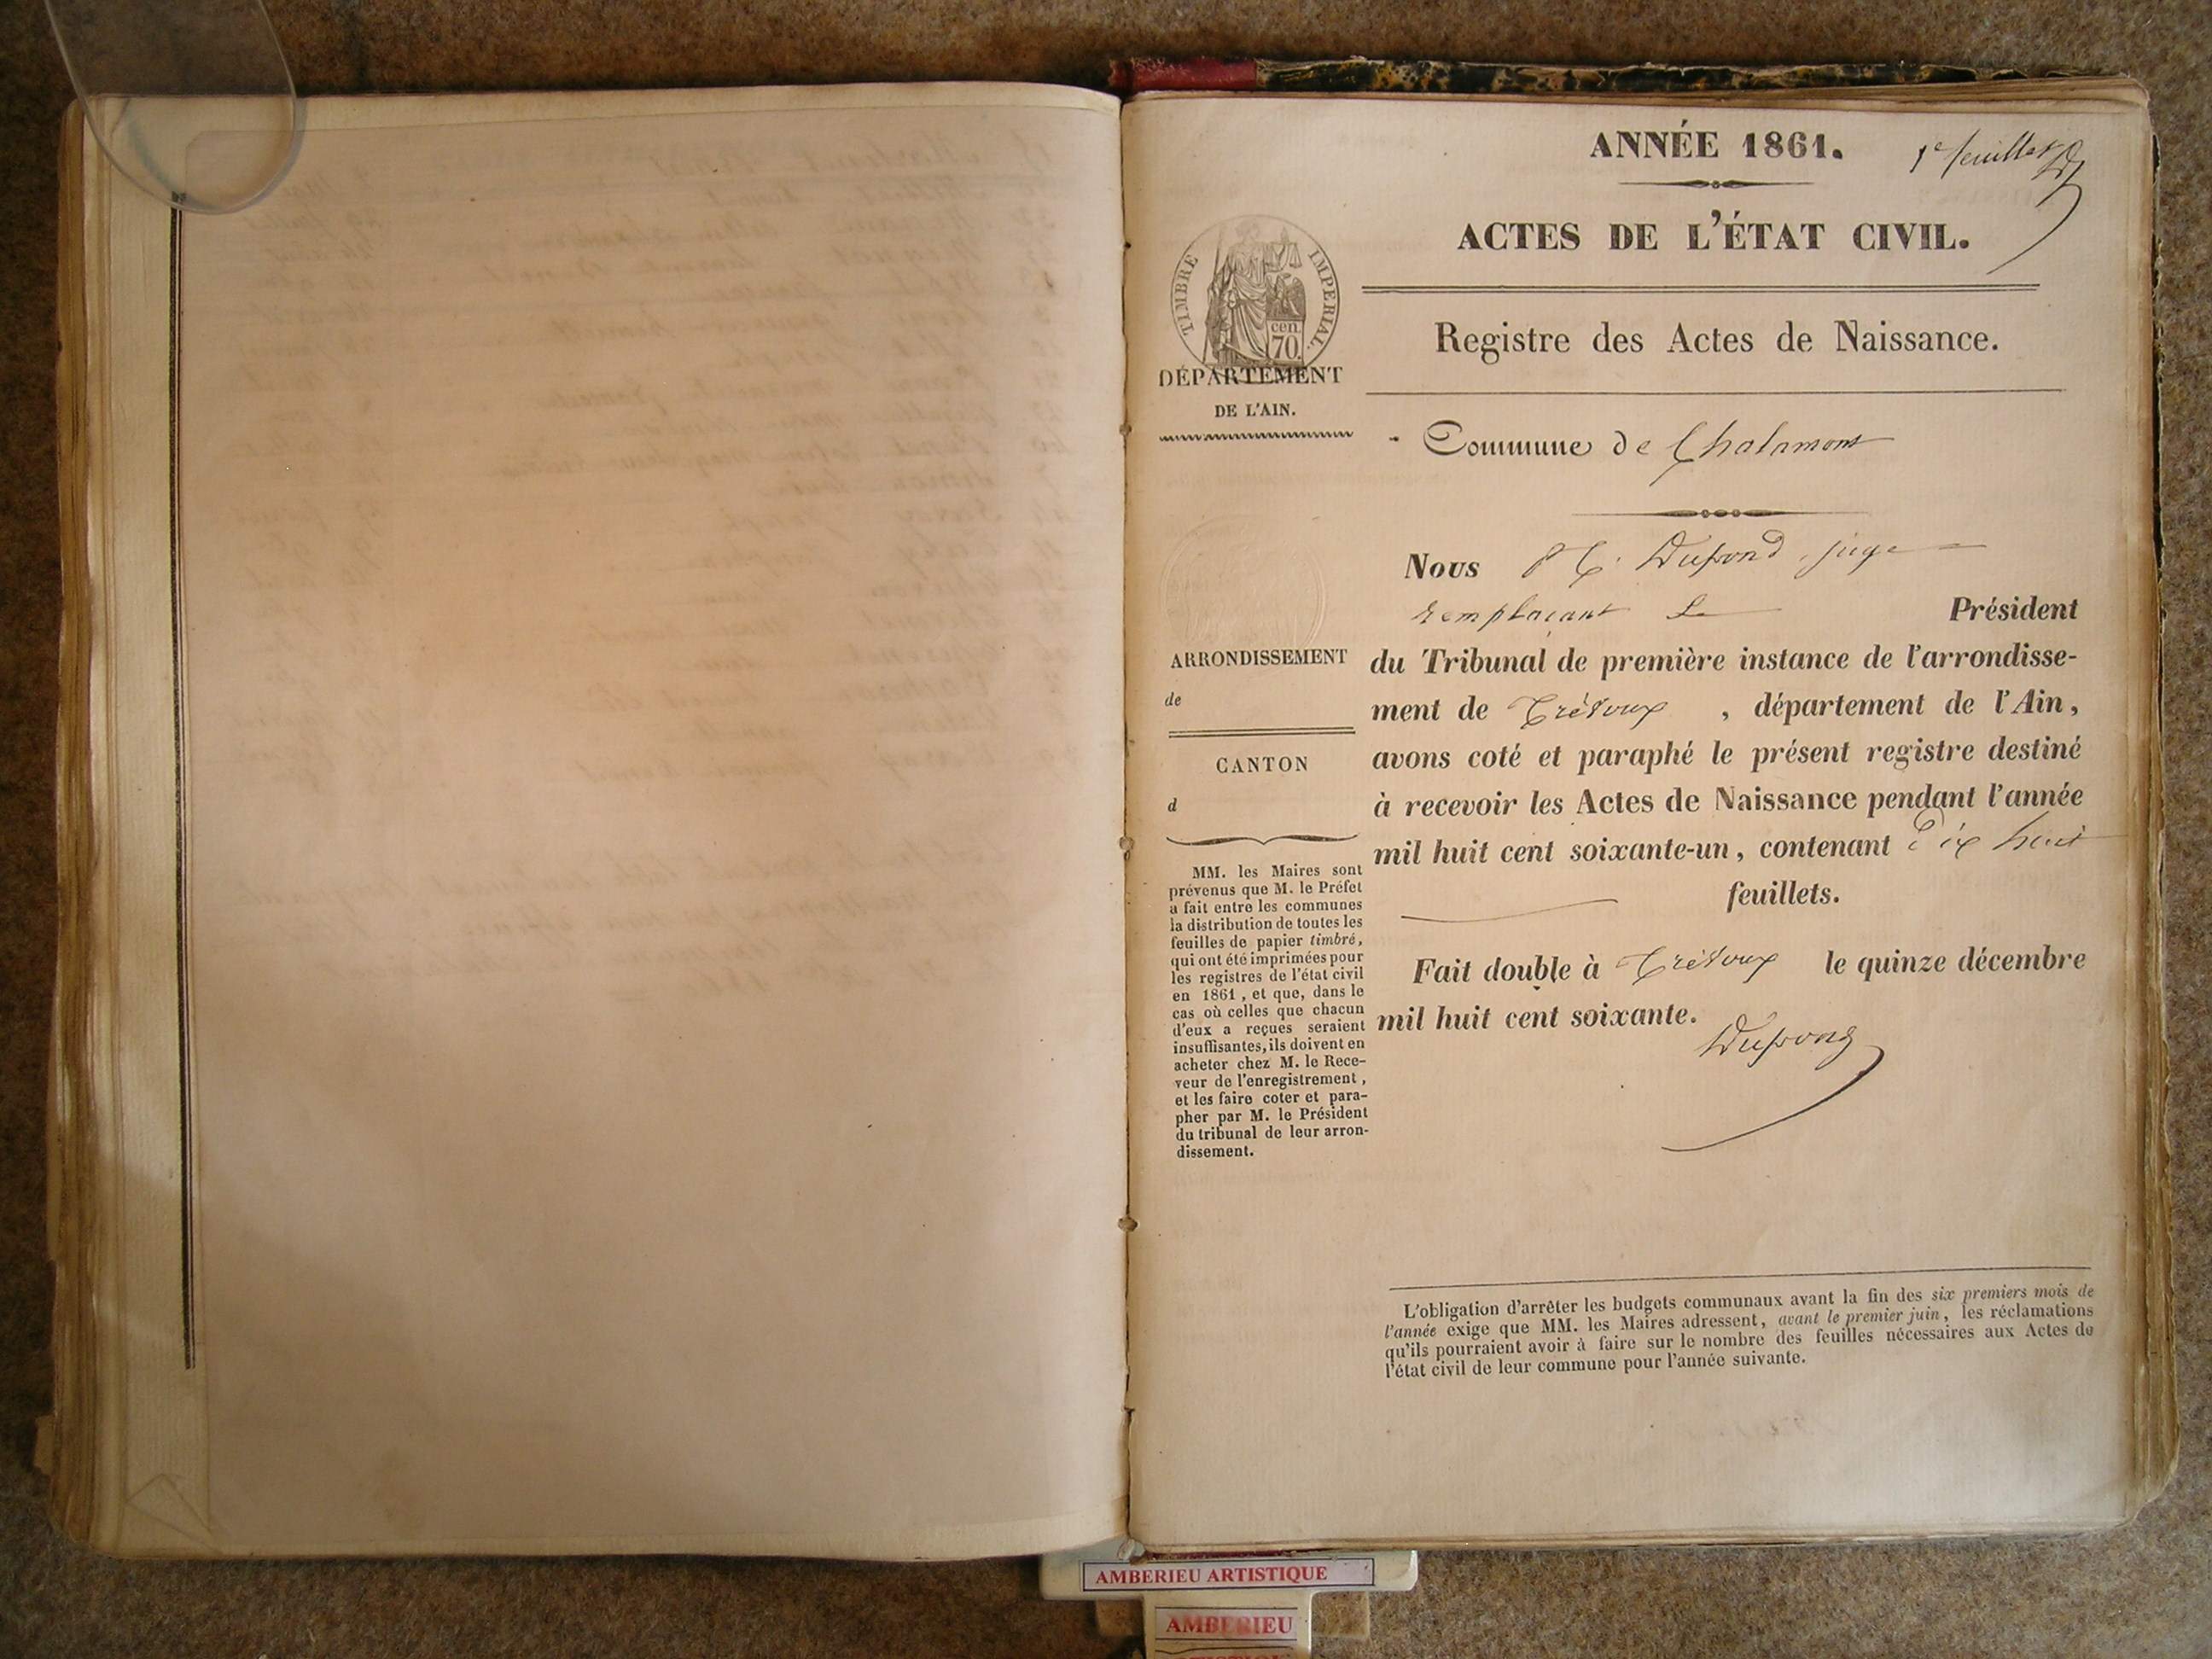 ANNÉE 1861.
1e feuillet
ACTES DE L'ÉTAT CIVIL.
TIMBRE IMPERIAL.
cen.
70.
Registre des Actes de Naissance.
DÉPARTEMENT
DE L'AIN.
Commune de Chalamont
Nous Dupond, juge
remplaçant Le Président
ARRONDISSEMENT
de
CANTON
d
du Tribunal de première instance de l'arrondisse-
ment de Trévoux, département de l'Ain,
avons coté et paraphé le présent registre destiné
à recevoir les Actes de Naissance pendant l'année
mil huit cent soixante-un, contenant Dix huit
feuillets.
MM. les Maires sont
prévenus que M. le Préfet
a fait entre les communes
la distribution de toutes les
feuilles de papier timbré,
qui ont été imprimées pour
les registres de l'état civil
en 1861, et que, dans le
cas où celles que chacun
d'eux a reçues seraient
insuffisantes, ils doivent en
acheter chez M. le Rece-
veur de l'enregistrement,
et les faire coter et para-
pher par M. le Président
du tribunal de leur arron-
dissement.
Fait double à Trévoux le quinze décembre
mil huit cent soixante.
Dupond
L'obligation d'arrêter les budgets communaux avant la fin des six premiers mois de
l'année exige que MM. les Maires adressent, avant le premier juin, les réclamations
qu'ils pourraient avoir à faire sur le nombre des feuilles nécessaires aux Actes de
l'état civil de leur commune pour l'année suivante.
AMBERIEU ARTISTIQUE
AMBERIEU